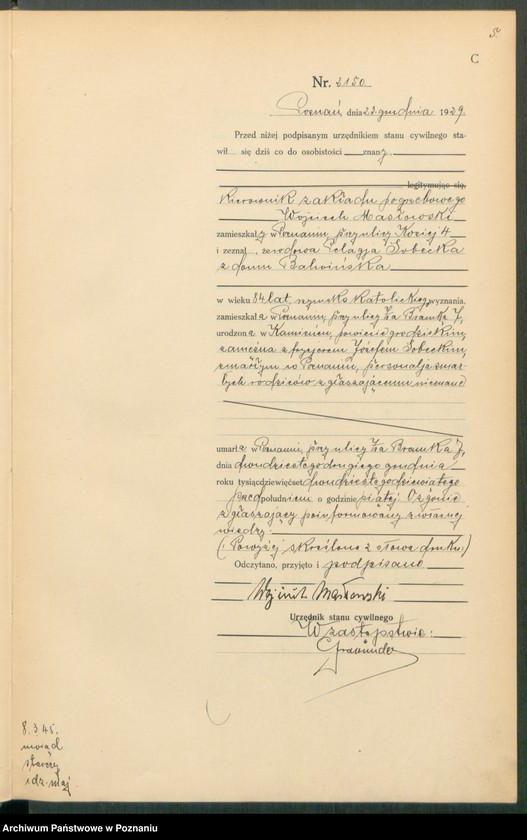 5.
C
Nr. 2150
Poznań, dnia 23. grudnia 1929.
Przed niżej podpisanym urzędnikiem stanu cywilnego sta-
wił się dziś co do osobistości znany
legitymując się,
kierownik zakładu pogrzebowego
Wojciech Masłowski
zamieszkały w Poznaniu, przy ulicy Koziej 4
i zeznał, że wdowa Pelagja Sobecka
z domu Balwińska
w wieku 84 lat, rzymsko katolickiego wyznania,
zamieszkała w Poznaniu, przy ulicy Za Bramką 7,
urodzona w Kamieniu, powiecie grodziskim,
zamężna z fryzjerem Józefem Sobeckim,
zmarłym w Poznaniu, personalja zmar-
łych rodziców zgłaszającemu nieznane
umarła w Poznaniu, przy ulicy Za Bramką 7,
dnia dwudziestego drugiego grudnia
roku tysiąc dziewięćset dwudziestego dziewiątego
przed południem o godzinie piątej. O zgonie
zgłaszający poinformowany z własnej
wiedzy.
(: Powyżej skreślono 2 słowa druku:)
Odczytano, przyjęto i podpisano
Wojciech Masłowski
Urzędnik stanu cywilnego
W zastępstwie:
8.3.45.
uwiąd
starczy
Archiwum Państwowe w Poznaniu